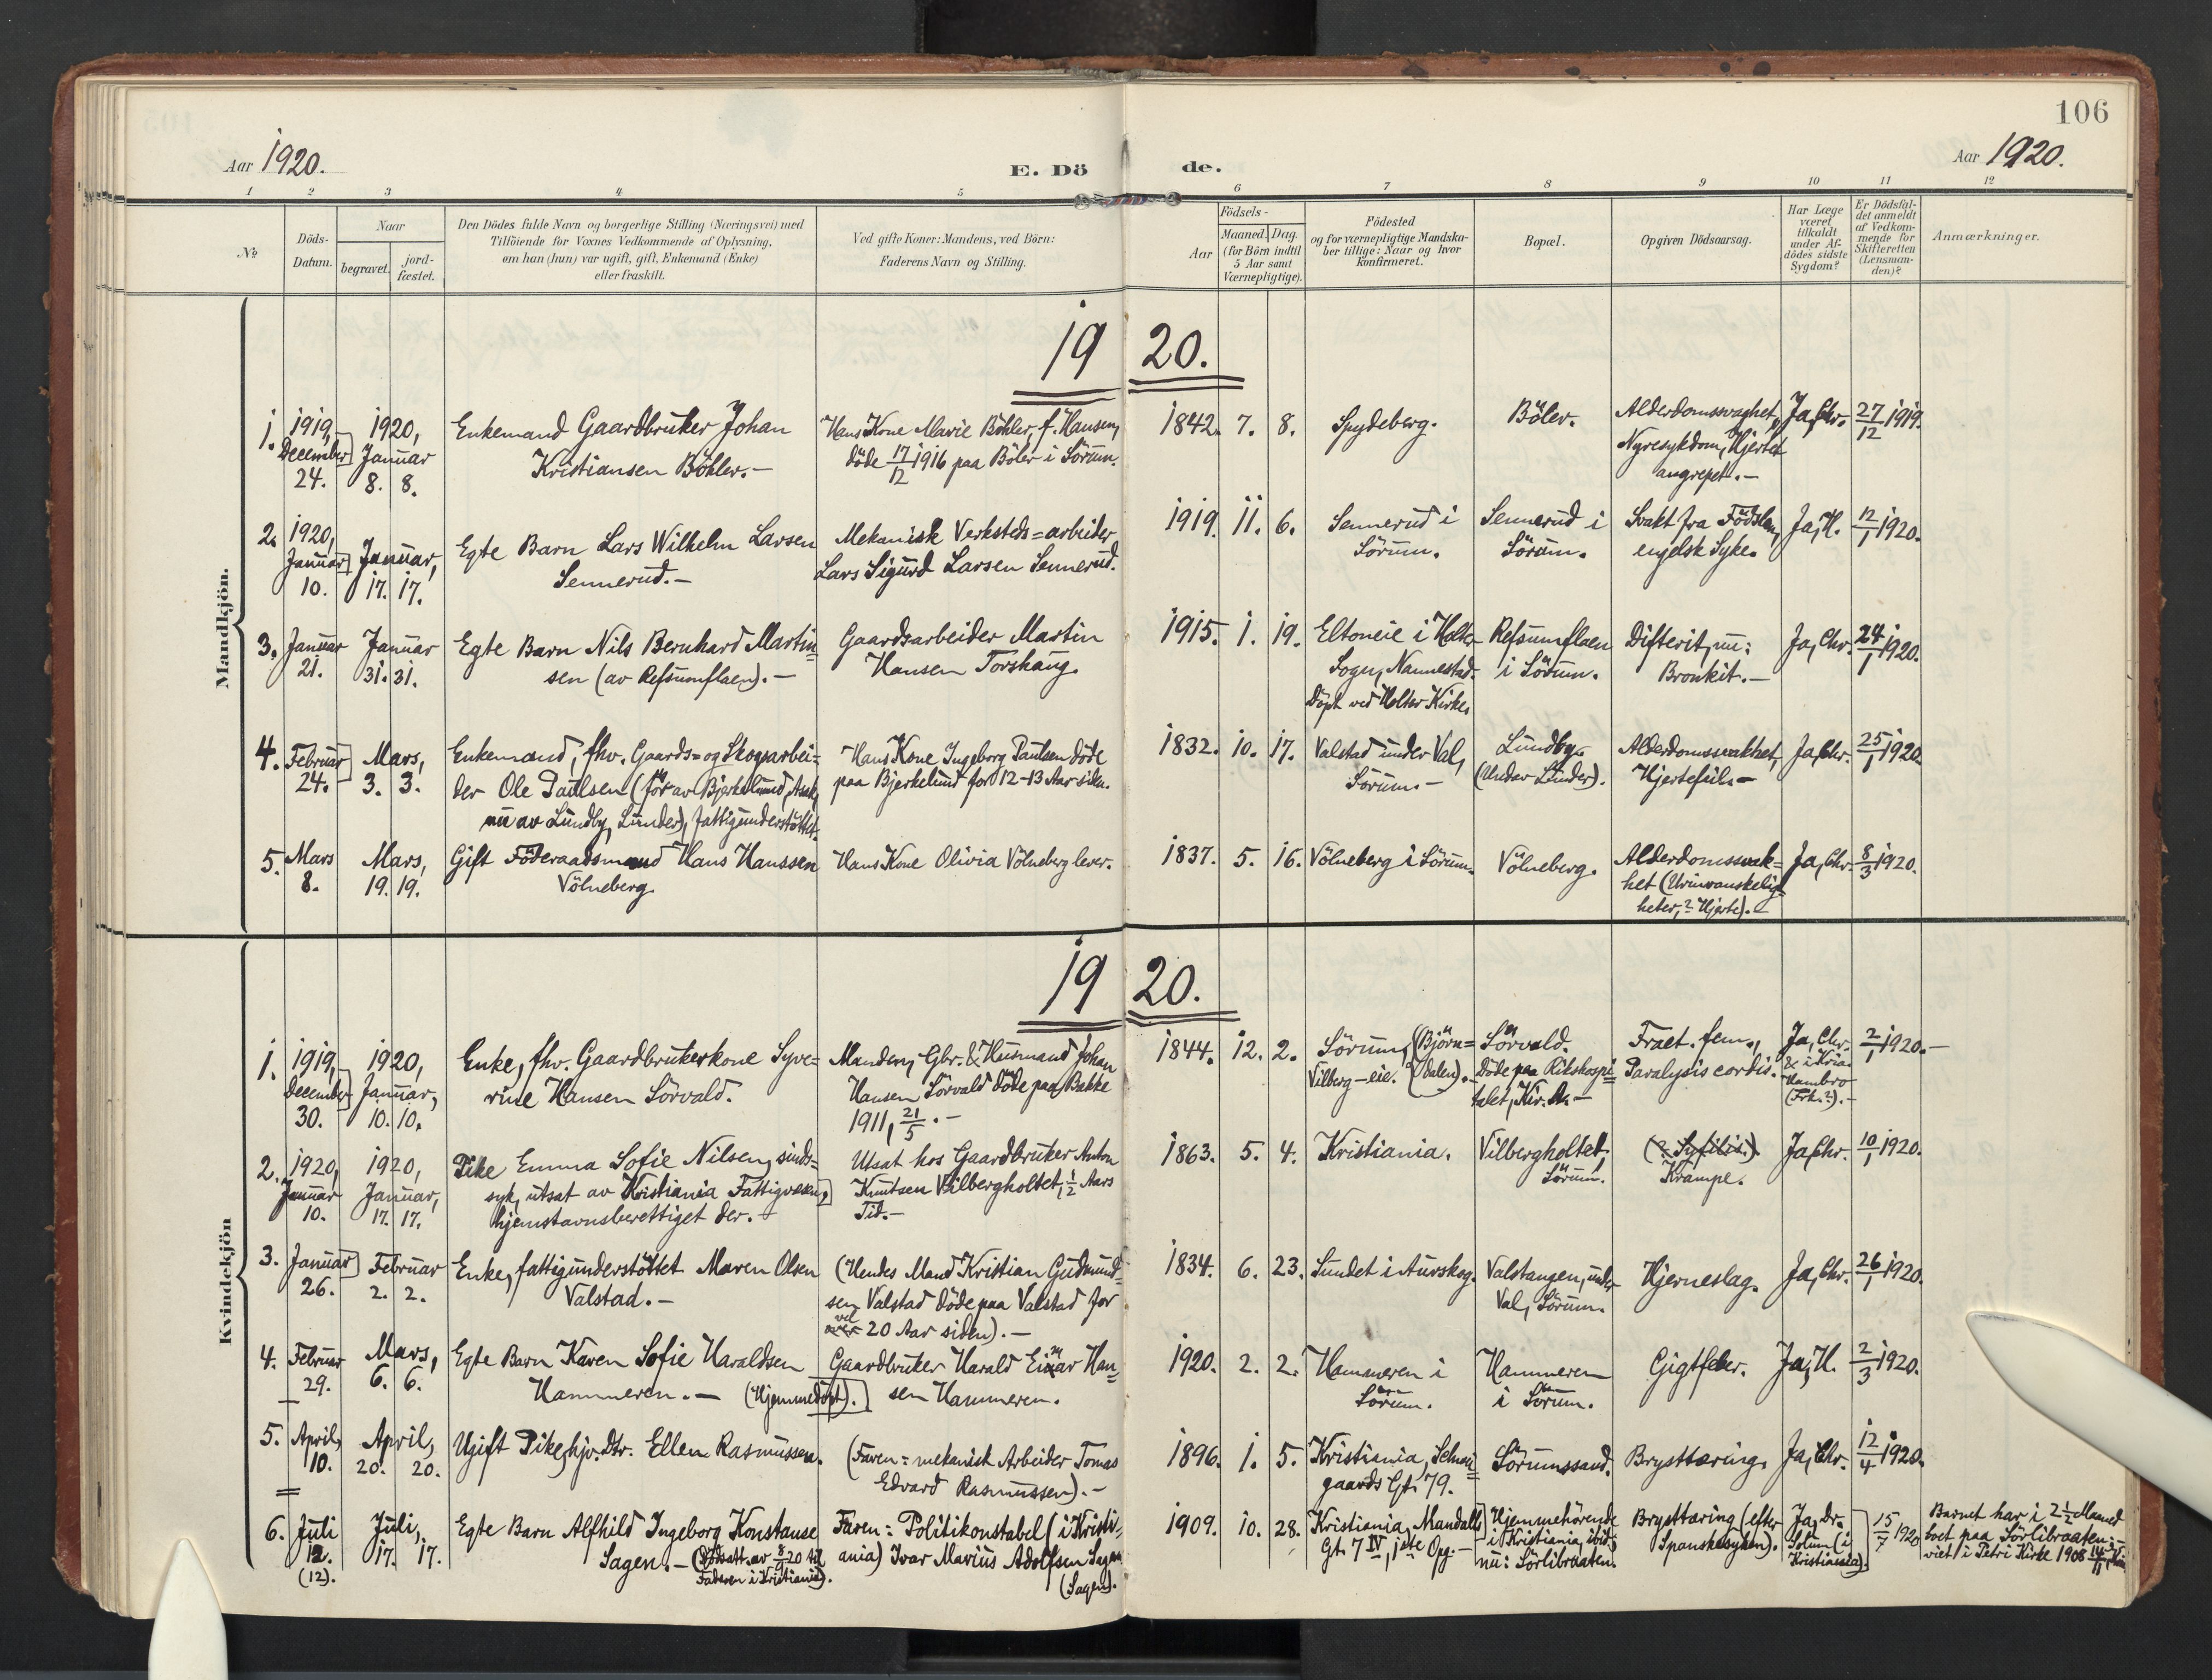 106
Aar 1920.
E. Dö de.
Aar 1920.
1 2 3 4 5 6 7 8 9 10 11 12
No
Döds-
Datum.
Naar
begravet.
jord-
fæstet.
Den Dödes fulde Navn og borgerlige Stilling (Næringsvei) med
Tilföiende for Voxnes Vedkommende af Oplysning,
om han (hun) var ugift, gift, Enkemand (Enke)
eller fraskilt.
Ved gifte Koner: Mandens, ved Börn:
Faderens Navn og Stilling.
Födsels-
Aar
Maaned. Dag.
(for Börn indtil
5 Aar samt
Værnepligtige).
Födested
og for værnepligtige Mandska-
ber tillige: Naar og hvor
konfirmeret.
Bopæl.
Opgiven Dödsaarsag.
Har Læge
været
tilkaldt
under Af-
dödes sidste
Sygdom?
Er Dödsfal-
det anmeldt
af Vedkom-
mende for
Skifteretten
(Lensman-
den)?
Anmærkninger.
Mandkjön.
1920.
1.
1919,
December
24.
1920,
Januar
8. 8.
Enkemand Gaardbruker Johan
Kristiansen Böhler.-
Hans Kone Marie Böhler, f. Hansen,
döde 17/12 1916 paa Böler i Sörum.
1842. 7. 8.
Spydeberg.
Böler.
Alderdomssvaghet,
Nyresykdom, Hjertet
angrepet.-
Ja, Chr.
27/12 1919.
2.
1920,
Januar
10.
Januar,
17. 17.
Egte Barn Lars Wilhelm Larsen
Sennerud.-
Mekanisk Verksteds=arbeider
Lars Sigurd Larsen Sennerud.
1919. 11. 6.
Sennerud i
Sörum.
Sennerud i
Sörum.
Svakt fra Födslen,
engelsk Syke.
Ja, H.
12/1 1920.
3.
Januar
21.
Januar
31. 31.
Egte Barn Nils Bernhard Martin=
sen (av Refsumflaen).-
Gaardsarbeider Martin
Hansen Torshaug.
1915. 1. 19.
Eltoneie i Holter
Sogn, Nannestad.
Döpt ved Holter Kirke.
Refsumflaen
i Sörum.
Difterit, nu:
Bronkit.-
Ja, Chr.
24/1 1920.
4.
Februar
24.
Mars,
3. 3.
Enkemand, fhv. Gaards=og Skogsarbei=
der Ole Paulsen (för av Bjerkelund, Asak,
nu av Lundby, Lunder), fattigunderstöttet.
Hans Kone Ingeborg Paulsen döde
paa Bjerkelund for 12-13 Aar siden.
1832. 10. 17.
Valstad under Val,
Sörum.-
Lundby
(Under Lunder).
Alderdomssvakhet,
Hjertefeil.-
Ja, Chr.
25/1 1920.
5.
Mars
8.
Mars,
19. 19.
Gift Föderaadsmand Hans Hanssen
Völneberg.
Hans Kone Olivia Völneberg lever.
1837. 5. 16.
Völneberg i Sörum.
Völneberg.
Alderdomssvak=
het (Urinvanskelig=
heter, ? Hjerte).-
Ja, Chr.
8/3 1920.
Kvindekjön
1920.
1.
1919,
December
30.
1920,
Januar,
10. 10.
Enke, fhv. Gaardbrukerkone Syve=
rine Hansen Sörvald.
Manden, Gbr. & Husmand Johan
Hansen Sörvald döde paa Bakke
1911, 21/5.-
1844. 12. 2.
Sörum, (Björn=
Vilberg-eie. dalen).-
Sörvald.
Döde paa Rikshospi=
talet, Kr.a.-
Fract. fem.,
Paralysis cordis.
Ja, Chr.
& i Kria.
Hambro
(Frk.?).-
2/1 1920.-
2.
1920,
Januar
10.
1920,
Januar,
17. 17.
Pike Emma Sofie Nilsen, sinds=
syk, utsat av Kristiania Fattigvæsen,
hjemstavnsberettiget der.-
Utsat hos Gaardbruker Anton
Knutsen Vilbergholtet, 1/2 Aars
Tid.-
1863. 5. 4.
Kristiania.
Vilbergholtet,
Sörum.
(? Syfilis.).
Krampe.
Ja, Chr.
10/1 1920.
3.
Januar
26.
Februar
2. 2.
Enke, fattigunderstöttet Maren Olsen
Valstad.-
(Hendes Mand Kristian Gudmund=
sen Valstad döde paa Valstad for
vel
over 20 Aar siden).-
1834. 6. 23.
Sundet i Aurskog.
Valstangen, under
Val, Sörum.
Hjerneslag.
Ja, Chr.
26/1 1920.
4.
Februar
29.
Mars,
6. 6.
Egte Barn Karen Sofie Haraldsen
Hammeren.- (Hjemmedöpt).
Gaardbruker Harald Einar Han=
sen Hammeren.
1920. 2. 2.
Hammeren i
Sörum.
Hammeren
i Sörum.
Gigtfeber.
Ja, H.
2/3 1920.
5.
April,
10.
April,
20. 20.
Ugift Pike, hjv. Dtr. Ellen Rasmussen.
(Faren = mekanisk Arbeider Tomas
Edvard Rasmussen).-
1896. 1. 5.
Kristiania, Schwei=
gaards Gt. 79.
Sörumssand.
Brysttæring.
Ja, Chr.
12/4 1920.
6.
Juli
12.
(12).
Juli,
17. 17.
Egte Barn Alfhild Ingeborg Konstanse
Sagen.- (Dödsatt. av 8/9 20 til
Faderen i Kristiania).
Faren: Politikonstabel (i Kristi=
ania) Ivar Marius Adolfsen Sagen
(Sagen).
1909. 10. 28.
Kristiania, Mandalls
Gt. 7 IV, 1ste Opg.-
Hjemmehörende
i Kristiania ibid.;
nu: Sörlibraaten.
Brysttæring (efter
Spanskesyken).
Ja, Dr.
Solum (i
Kristiania).
15/7 1920
Barnet har i 2 1/2 Maaned
boet paa Sörlibraaten.-
viet i Petri Kirke 1908